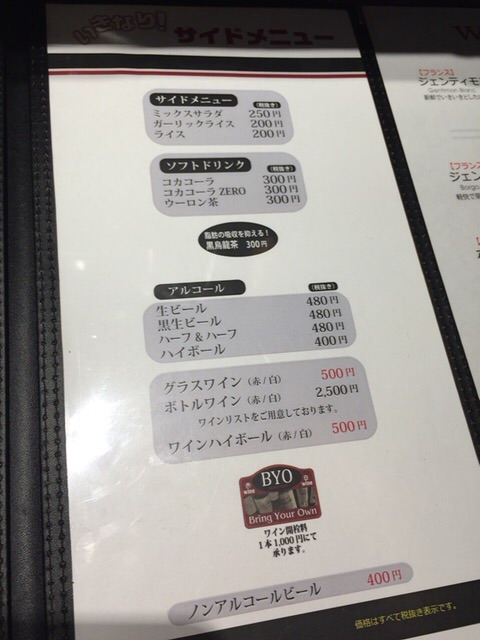 いきなり! サイドメニュー
サイドメニュー (税抜き)
ミックスサラダ 250円
ガーリックライス 200円
ライス 200円
ソフトドリンク (税抜き)
コカコーラ 300円
コカコーラ ZERO 300円
ウーロン茶 300円
脂肪の吸収を抑える!
黒烏龍茶 300円
アルコール (税抜き)
生ビール 480円
黒生ビール 480円
ハーフ&ハーフ 480円
ハイボール 400円
グラスワイン(赤/白) 500円
ボトルワイン(赤/白) 2,500円
ワインリストをご用意しております。
ワインハイボール(赤/白) 500円
BYO
Bring Your Own
ワイン開栓料
1本1,000円にて
承ります。
ノンアルコールビール 400円
価格はすべて税抜き表示です。
W
【フランス】
ジェンティモ
Gentimon Blanc
【フランス】
ジェン